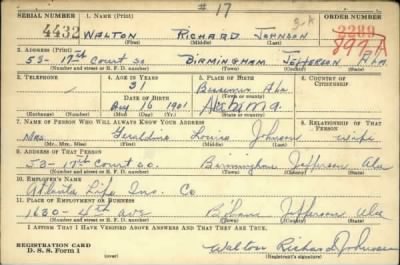 # 17
SERIAL NUMBER 1. NAME (Print) ORDER NUMBER
4432 WALTON RICHARD JOHNSON 2289
(First) (Middle) (Last) 897A
2. ADDRESS (Print)
53 - 17th Court SO BIRMINGHAM JEFFERSON ALA.
(Number and street or R. F. D. number) (Town) (County) (State)
3. TELEPHONE 4. AGE IN YEARS 5. PLACE OF BIRTH 6. COUNTRY OF CITIZENSHIP
31 Bessemer Ala
DATE OF BIRTH (Town or county)
Aug 16 1901 Alabama
(Exchange) (Number) (Mo.) (Day) (Yr.) (State or country)
7. NAME OF PERSON WHO WILL ALWAYS KNOW YOUR ADDRESS 8. RELATIONSHIP OF THAT PERSON
Mrs Geraldine Louise Johnson wife
(Mr., Mrs., Miss) (First) (Middle) (Last)
9. ADDRESS OF THAT PERSON
53 - 17th Court So. Birmingham Jefferson Ala
(Number and street or R. F. D. number) (Town) (County) (State)
10. EMPLOYER'S NAME
Atlanta Life Ins. Co
11. PLACE OF EMPLOYMENT OR BUSINESS
1630 - 4th ave B'ham Jefferson Ala
(Number and street or R. F. D. number) (Town) (County) (State)
I AFFIRM THAT I HAVE VERIFIED ABOVE ANSWERS AND THAT THEY ARE TRUE.
REGISTRATION CARD
D. S. S. Form 1 (over) Walton Richard Johnson
(Registrant's signature)